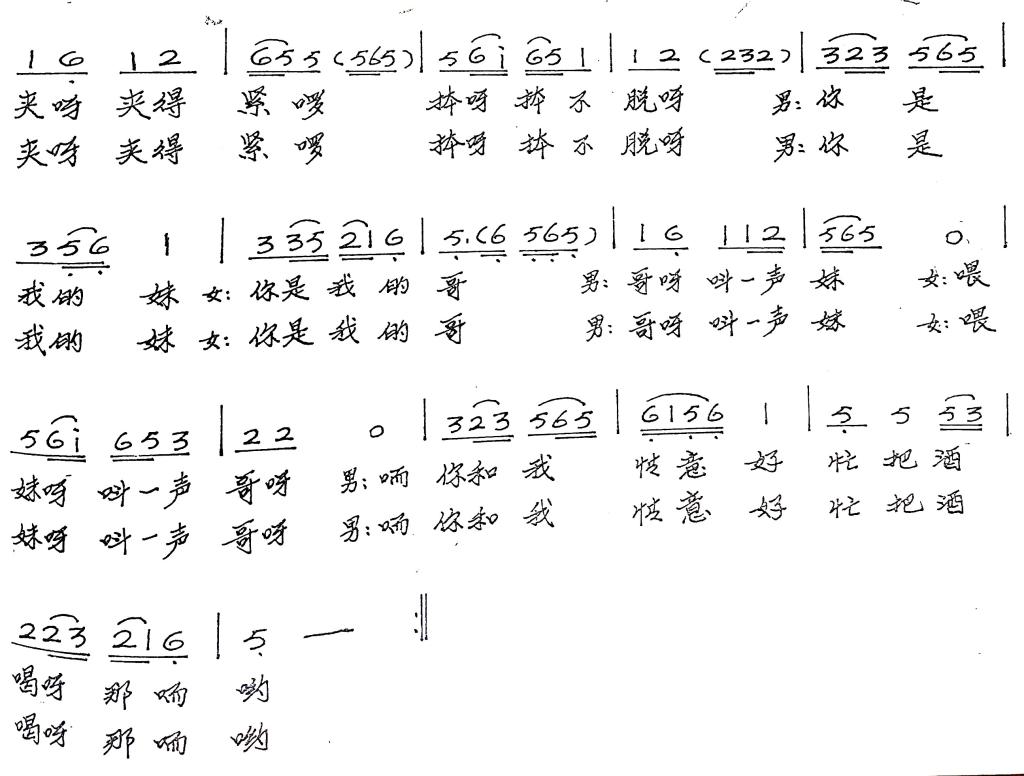 1 6 1 2 | 6 5 5 (5 6 5) | 5 6 i 6 5 1 | 1 2 (2 3 2) | 3 2 3 5 6 5 |
夹呀 夹得 紧 啰 抙呀 抙 不 脱呀 男:你 是
夹呀 夹得 紧 啰 抙呀 抙 不 脱呀 男:你 是
3 5 6 1 | 3 3 5 2 1 6 | 5. (6 5 6 5) | 1 6 1 1 2 | 5 6 5 0 |
我的 妹 女:你是 我 的 哥 男:哥呀 呌一声 妹 女:喂
我的 妹 女:你是 我 的 哥 男:哥呀 呌一声 妹 女:喂
5 6 i 6 5 3 | 2 2 0 | 3 2 3 5 6 5 | 6 1 5 6 1 | 5 5 5 3 |
妹呀 呌一声 哥呀 男:唡 你和 我 意 好 忙 把 酒
妹呀 呌一声 哥呀 男:唡 你和 我 意 好 忙 把 酒
2 2 3 2 1 6 | 5 — :‖
喝呀 那 唡 哟
喝呀 那 唡 哟